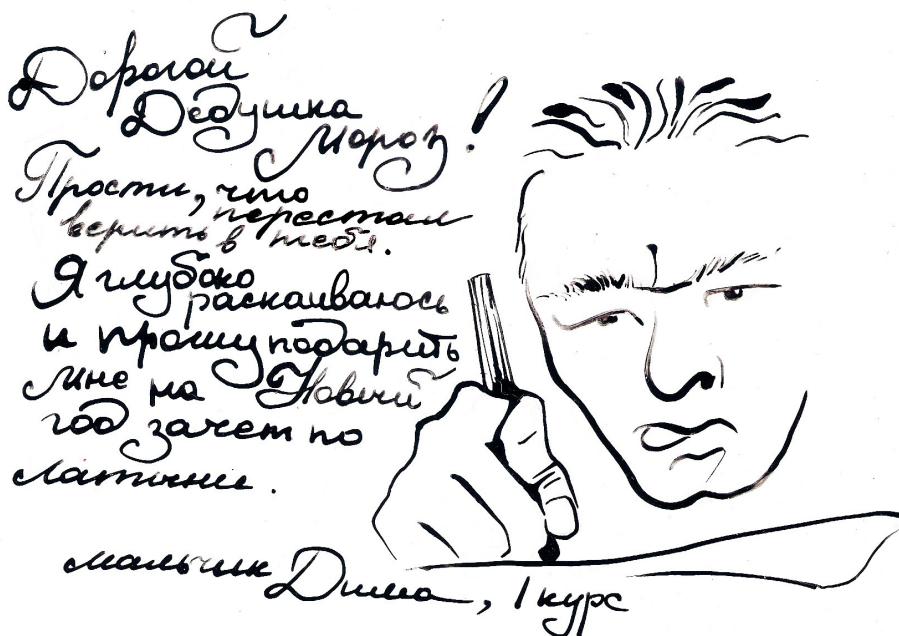 Дорогой
Дедушка
Мороз!
Прости, что
перестал
верить в тебя.
Я глубоко
раскаиваюсь
и прошу подарить
мне на Новый
год зачет по
латыни.
мальчик Дима, 1 курс